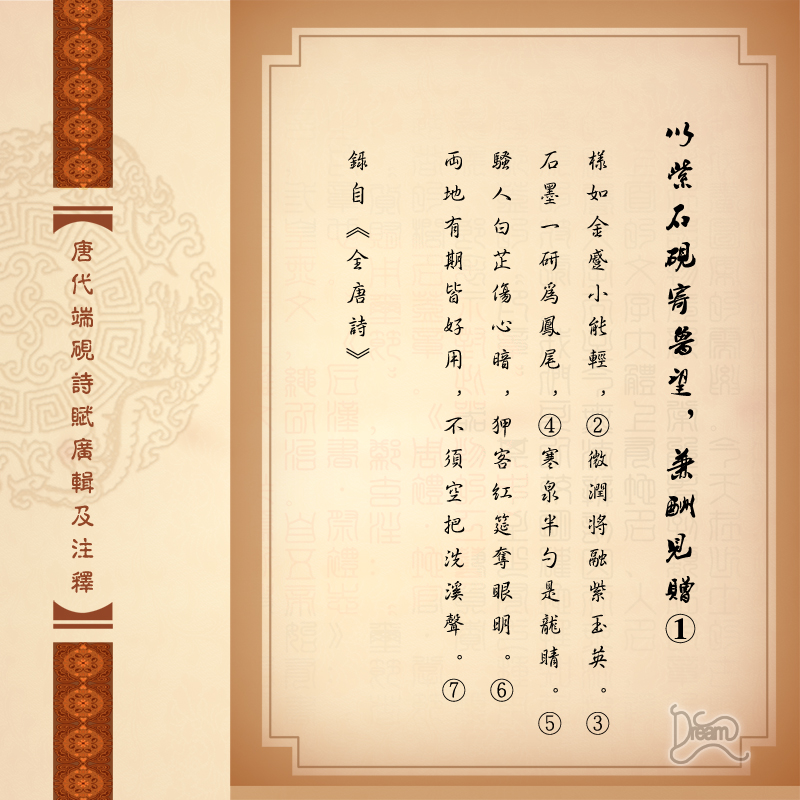 以紫石硯寄魯望，兼酬見贈①
樣如金蹙小能輕，②微潤將融紫玉英。③
石墨一研爲鳳尾，④寒泉半勺是龍睛。⑤
騷人白芷傷心暗，狎客紅筵奪眼明。⑥
兩地有期皆好用，不須空把洗溪聲。⑦
錄自《全唐詩》
唐代端硯詩賦廣輯及注釋
Dream